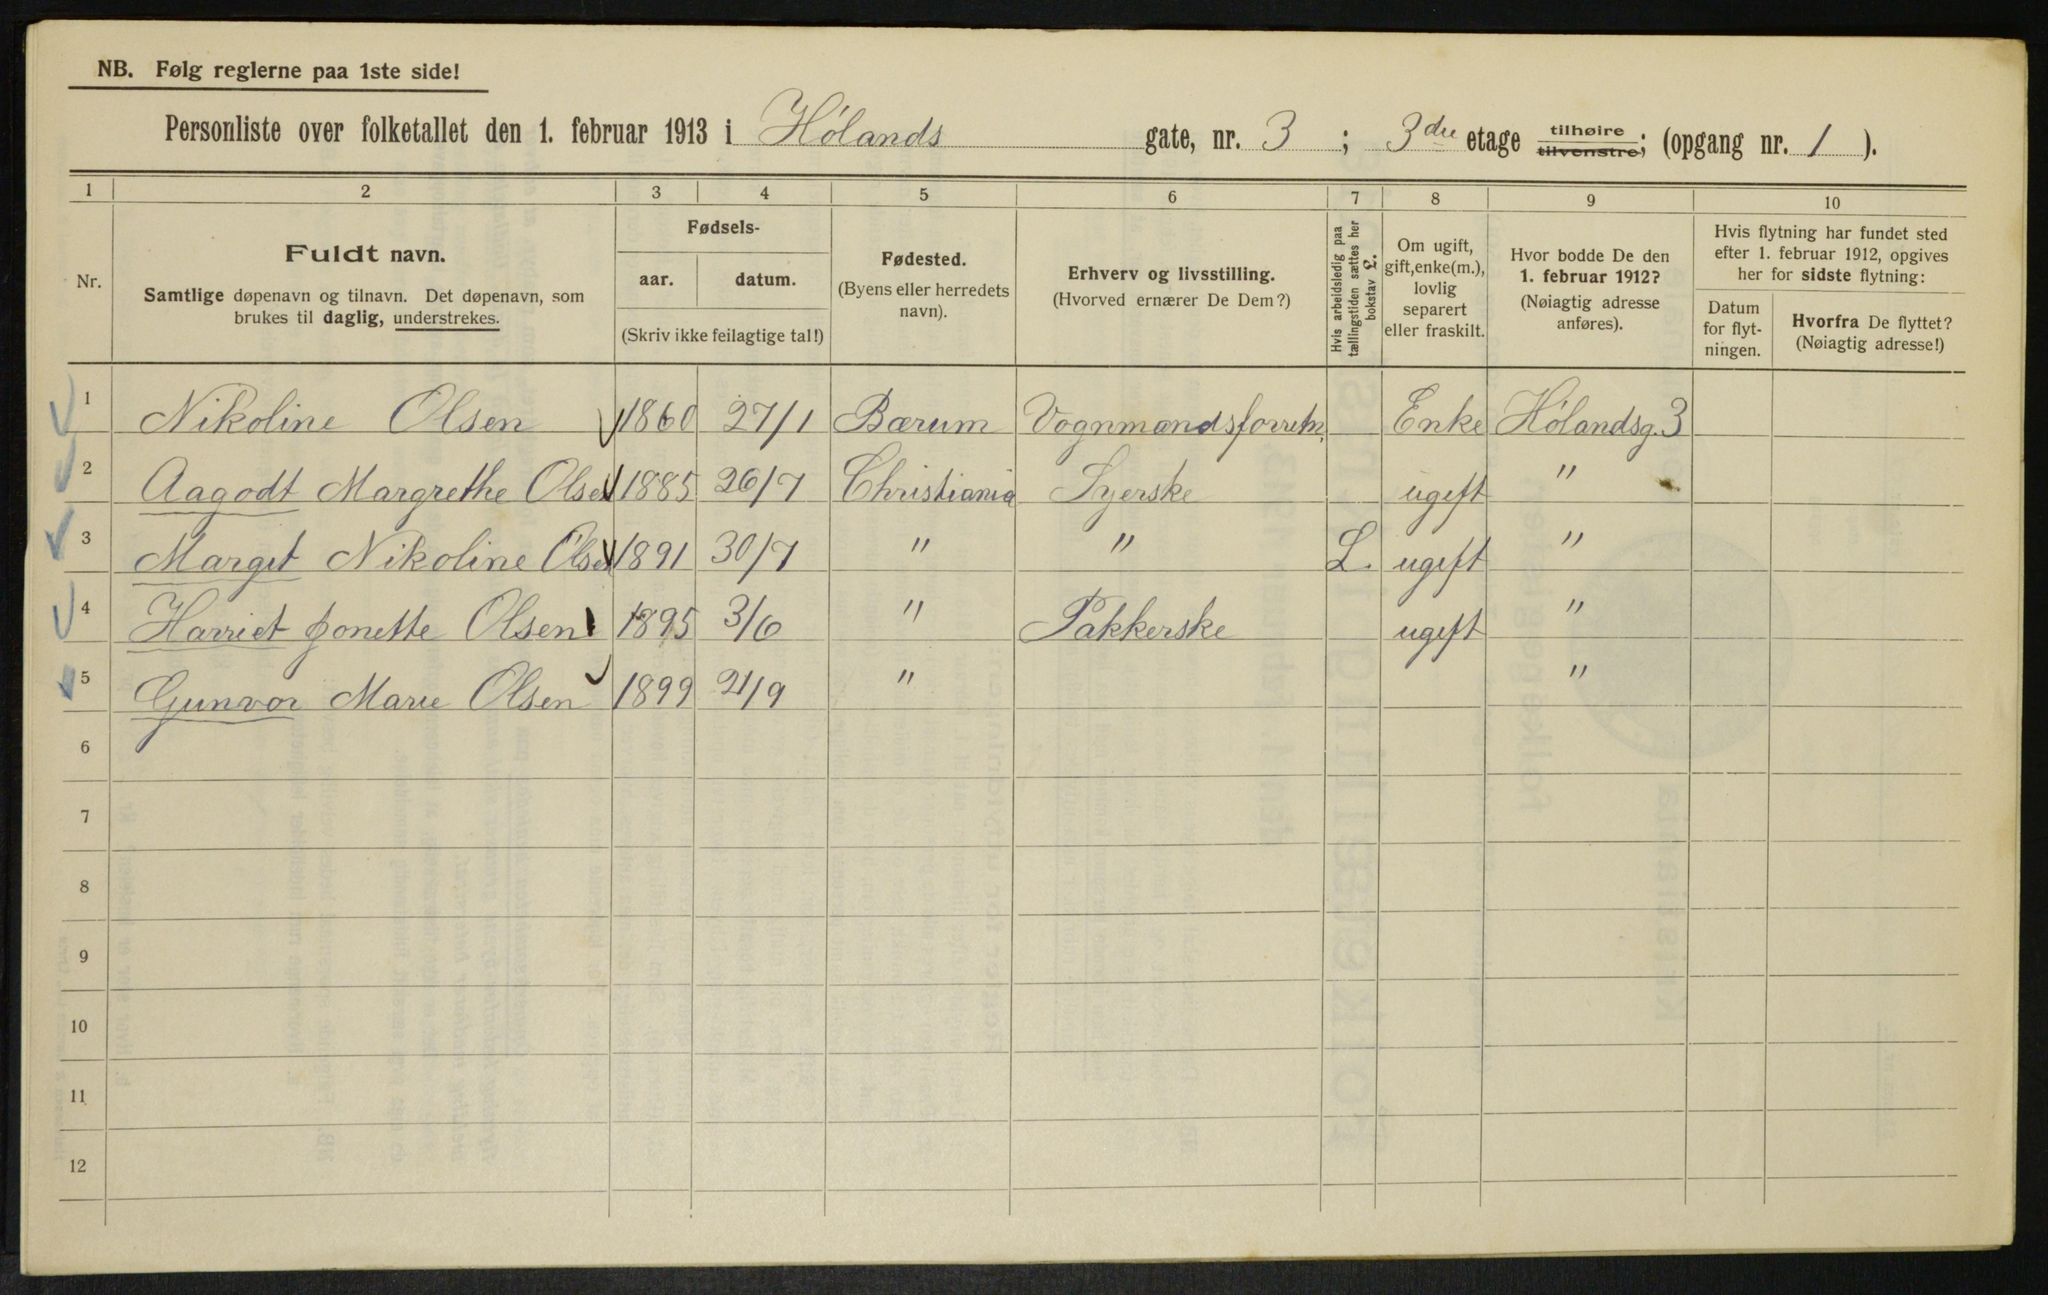 NB. Følg reglerne paa 1ste side!
Personliste over folketallet den 1. februar 1913 i Hølands gate, nr. 3 ; 3dre etage tilhøire tilvenstre; (opgang nr. 1 ).
1 2 3 4 5 6 7 8 9 10
Nr.
Fuldt navn.
Samtlige døpenavn og tilnavn. Det døpenavn, som
brukes til daglig, understrekes.
Fødsels-
aar. datum.
(Skriv ikke feilagtige tal!)
Fødested.
(Byens eller herredets
navn).
Erhverv og livsstilling.
(Hvorved ernærer De Dem?)
Hvis arbeidsledig paa
tællingstiden sættes her
bokstav L.
Om ugift,
gift, enke(m.),
lovlig
separert
eller fraskilt.
Hvor bodde De den
1. februar 1912?
(Nøiagtig adresse
anføres).
Hvis flytning har fundet sted
efter 1. februar 1912, opgives
her for sidste flytning:
Datum
for flyt-
ningen.
Hvorfra De flyttet?
(Nøiagtig adresse!)
1 Nikoline Olsen 1860 27/1 Bærum Vognmandsforretn. Enke Hølandsg. 3
2 Aagodt Margrethe Olsen 1885 26/7 Christiania Syerske ugift "
3 Margit Nikoline Olsen 1891 30/7 " " L. ugift "
4 Harriet Jonette Olsen 1895 3/6 " Pakkerske ugift "
5 Gunvor Marie Olsen 1899 21/9 " "
6
7
8
9
10
11
12